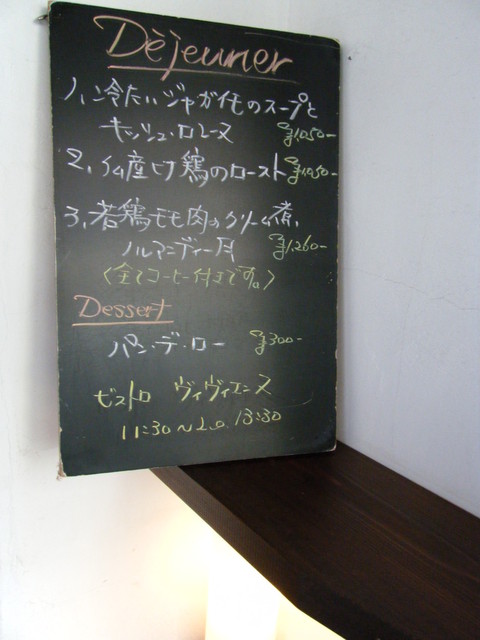 Dèjeuner
1、冷たいジャガイモのスープと
キッシュ・ロレーヌ ¥1,050-
2、仏産ヒナ鶏のロースト ¥1,050-
3、若鶏モモ肉のクリーム煮、
ノルマンディー風 ¥1,260-
〈全てコーヒー付きです。〉
Dessert
パン・デ・ロー ¥300-
ビストロ ヴィヴィエンヌ
11:30〜L.O. 13:30